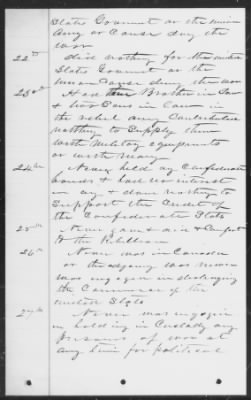 States Government or the Union
Army or Cause during the
war
22nd
did nothing for the United
States Government or the
Union Cause during the war
23rd
Had Brother in Law
& two Sons in Law in
the rebel army Contributed
nothing to Supply them
with Military equipments
or with money
24th
Never held any Confederate
bonds & had no interest
in any & done nothing to
Support the Credit of
the Confederate States
25th
Never gave aid & Comfort
to the Rebellion
26th
Never was in Canada
or adjoining was never
was engaged in destroying
the Commerce of the
United States
27th
Never was engaged
in holding in Custody any
prisoners of war at
any time for political